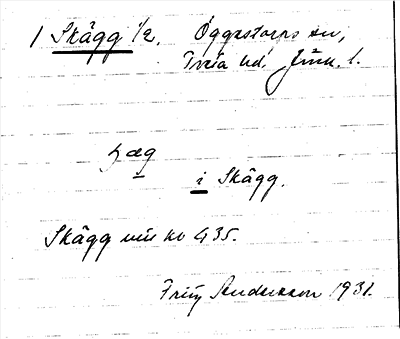 1 Skägg 1/2. Öggestorps sn,
Tveta hd. Jönk. l.
skæg
i Skägg.
Skägg män kv 435.
Fritz Andersson 1931.